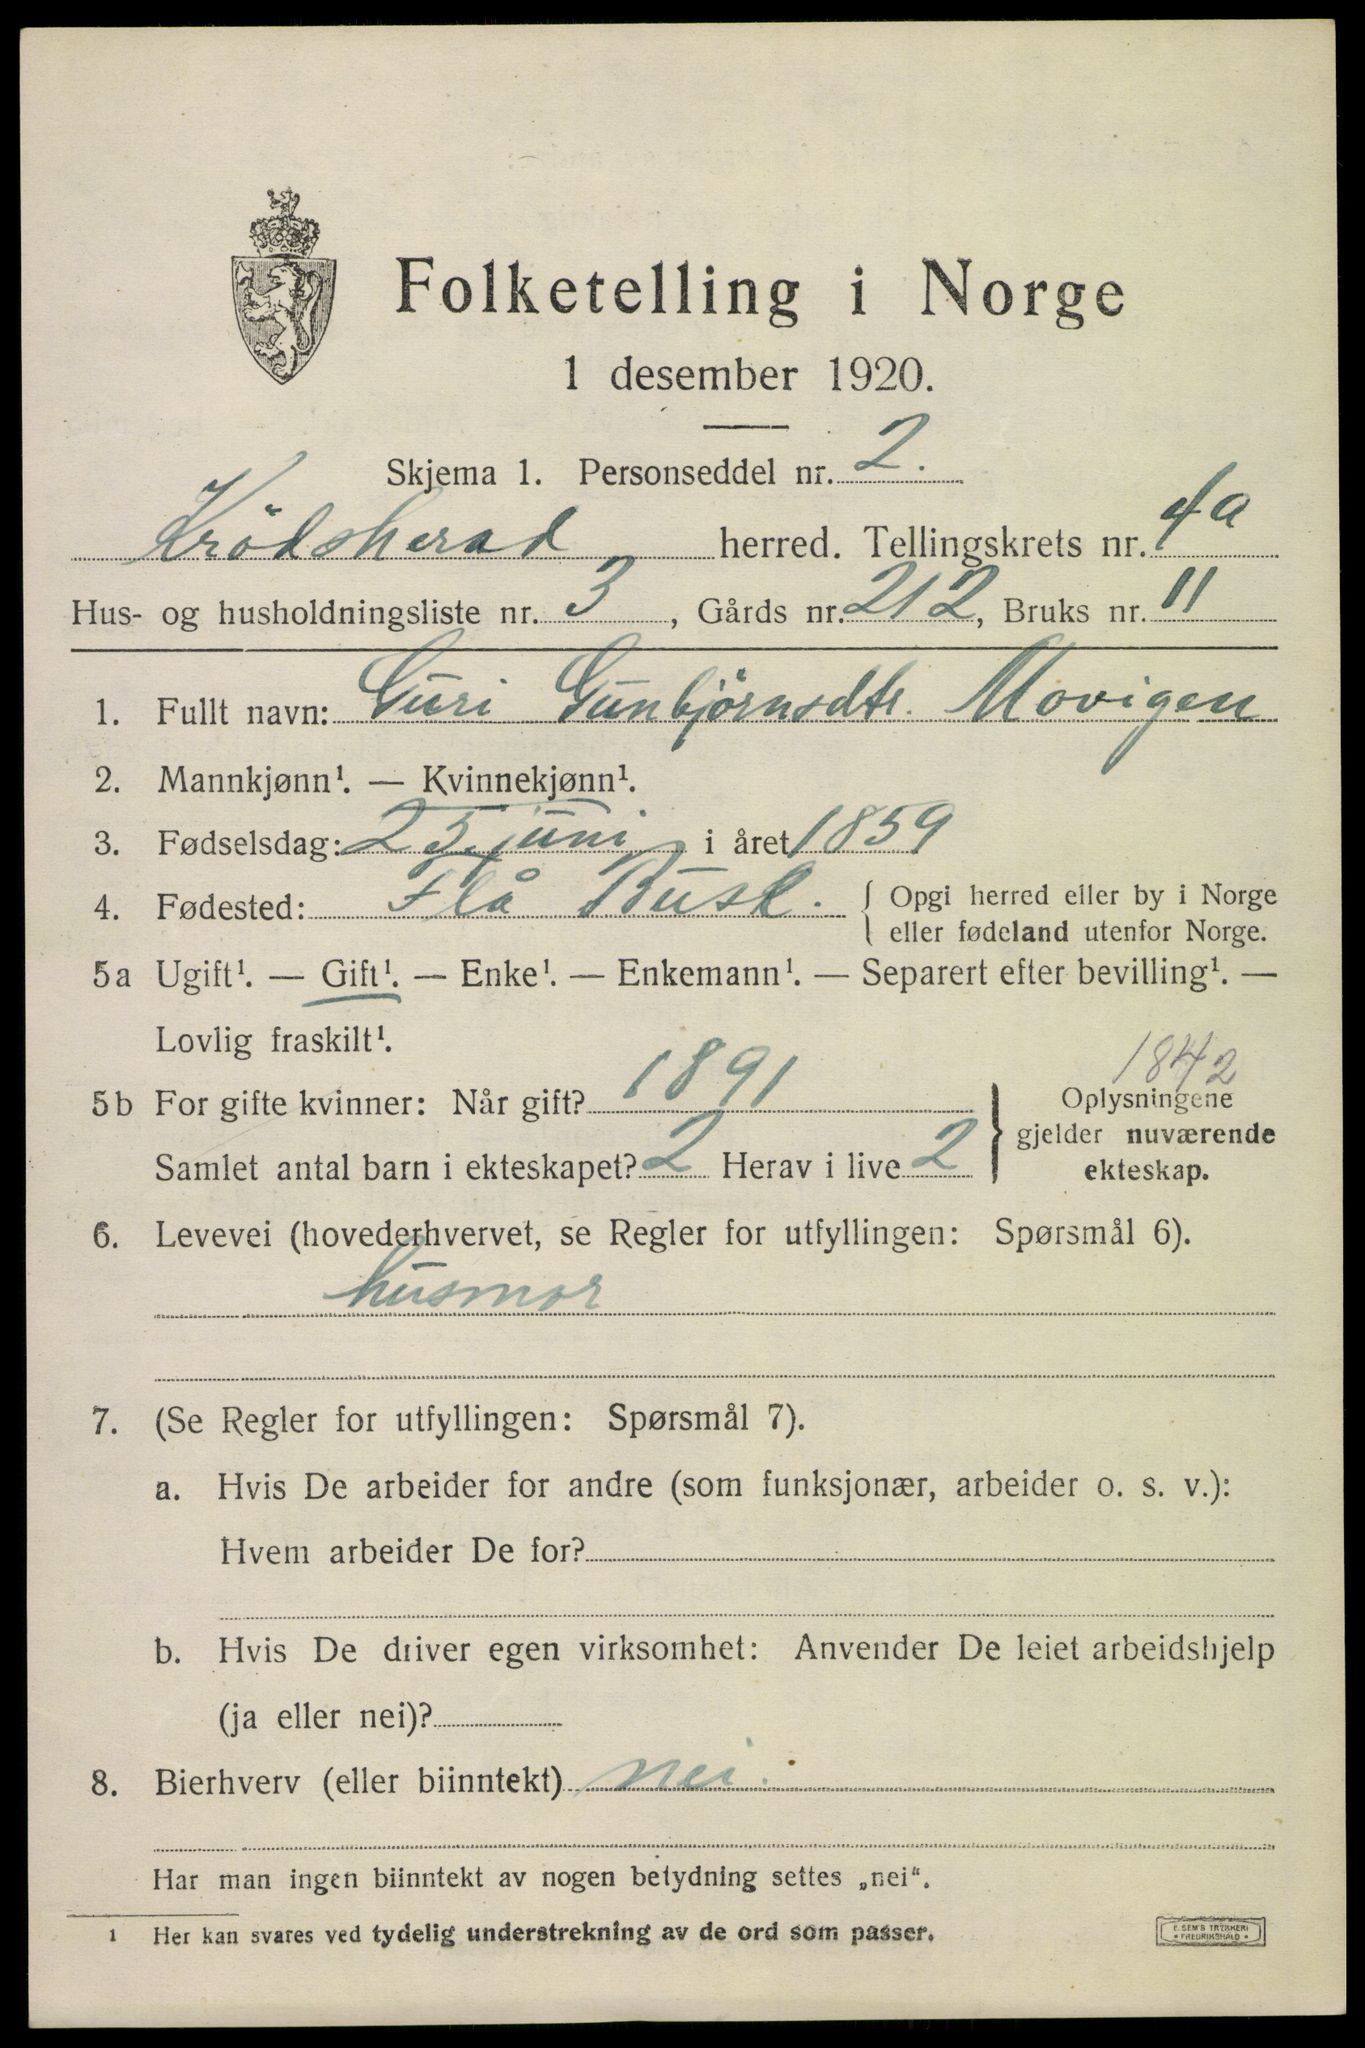 Folketelling i Norge
1 desember 1920.
Skjema 1. Personseddel nr. 2.
Krödsherad herred. Tellingskrets nr. 4a
Hus- og husholdningsliste nr. 3, Gårds nr. 212, Bruks nr. 11
1. Fullt navn: Guri Gunbjørnsdtr. Movigen
2. Mannkjønn¹. — Kvinnekjønn¹.
3. Fødselsdag: 25 juni i året 1859
4. Fødested: Flå Busk. { Opgi herred eller by i Norge
eller fødeland utenfor Norge.
5a Ugift¹. — Gift¹. — Enke¹. — Enkemann¹. — Separert efter bevilling¹. —
Lovlig fraskilt¹.
1842
5b For gifte kvinner: Når gift? 1891 } Oplysningene
gjelder nuværende
Samlet antal barn i ekteskapet? 2 Herav i live 2 ekteskap.
6. Levevei (hovederhvervet, se Regler for utfyllingen: Spørsmål 6).
husmor
7. (Se Regler for utfyllingen: Spørsmål 7).
a. Hvis De arbeider for andre (som funksjonær, arbeider o. s. v.):
Hvem arbeider De for?
b. Hvis De driver egen virksomhet: Anvender De leiet arbeidshjelp
(ja eller nei)?
8. Bierhverv (eller biinntekt) nei.
Har man ingen biinntekt av nogen betydning settes „nei“.
¹ Her kan svares ved tydelig understrekning av de ord som passer.
E. SEM'S TRYKKERI
• FREDRIKSHALD •